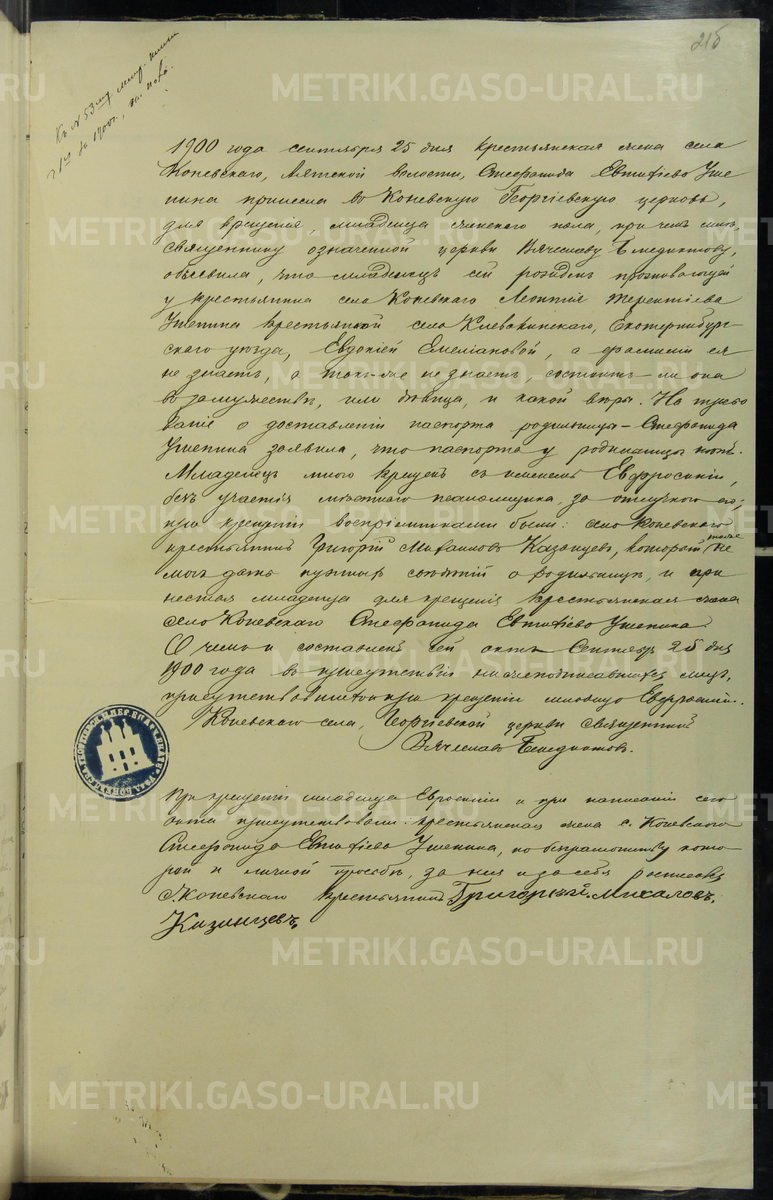 216
Къ № 53 му метр. книги
1900 г.
1900 года сентября 25 дня крестьянская жена села
Коневскаго, Аятской волости, Стефанида Евтифiева Уше-
нина принесла въ Коневскую Георгiевскую церковь,
для крещенiя, младенца женскаго пола, при чемъ мнѣ,
священнику означенной церкви Вячеславу Бенедиктову,
объявила, что младенецъ сей рожденъ проживающей
у крестьянина села Коневскаго Леонтiя Терентiева
Ушенина крестьянкой села Клевакинскаго, Екатеринбург-
скаго уѣзда, Евдокiей Емелiановой, а фамилiи ея
не знаетъ, а также не знаетъ, состоитъ ли она
въ замужествѣ, или дѣвица, и какой вѣры. На требо
ванiе о доставленiи паспорта родильницы – Стефанида
Ушенина заявила, что паспорта у родильницы нѣтъ.
Младенецъ мною крещенъ съ именемъ Евфросинiи,
безъ участiя мѣстнаго псаломщика, за отлучкою его;
при крещенiи воспрiемниками были: села Коневскаго
крестьянинъ Григорiй Михаиловъ Казанцевъ, который также не
могъ дать нужныхъ свѣдѣнiй о родильницѣ, и при
несшая младенца для крещенiя крестьянская жена
села Коневскаго Стефанида Евтифiева Ушенина.
О чемъ и составленъ сей актъ Сентября 25 дня
1900 года въ присутствiи нижеподписавшихся лицъ,
присутствовавшихъ при крещенiи младенца Евфросинiи.
Коневскаго села, Георгiевской церкви священникъ
Вячеславъ Бенедиктовъ.
При крещенiи младенца Евфросинiи и при написанiи сего
акта присутствовали: крестьянская жена с. Коневскаго
Стефанида Евтифiева Ушенина, по безграмотству кото-
рой и личной просьбѣ, за нея и за себя росписался
с. Коневскаго крестьянинъ Григорьй Михаловъ
Казанцевъ
METRIKI.GASO-URAL.RU